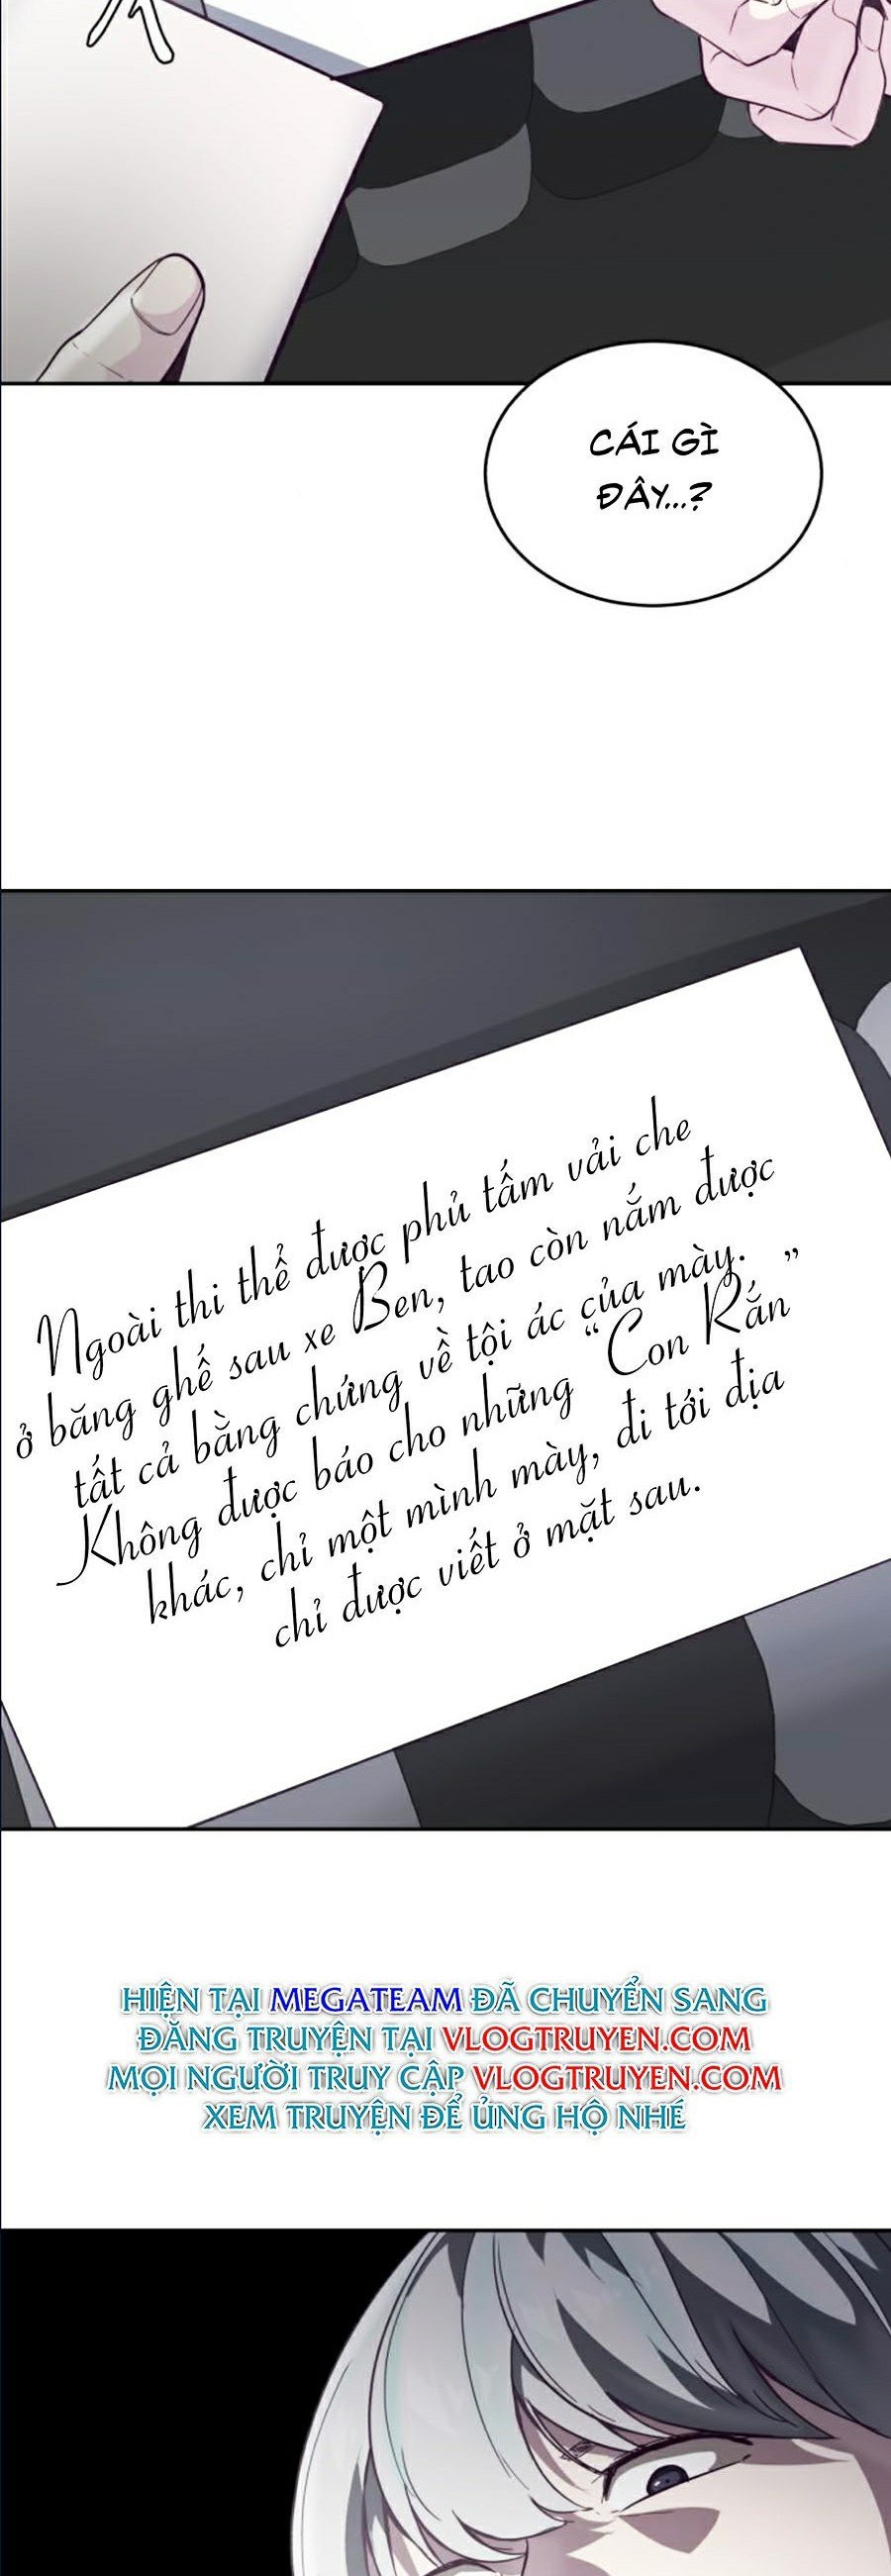 CÁI GÌ
ĐÂY...?
Ngoài thi thể được phủ tấm vải che
ở băng ghế sau xe Ben, tao còn nắm được
tất cả bằng chứng về tội ác của mày.
Không được báo cho những “Con Rắn”
khác, chỉ một mình mày, đi tới địa
chỉ được viết ở mặt sau.
HIỆN TẠI MEGATEAM ĐÃ CHUYỂN SANG
ĐĂNG TRUYỆN TẠI VLOGTRUYEN.COM
MỌI NGƯỜI TRUY CẬP VLOGTRUYEN.COM
XEM TRUYỆN ĐỂ ỦNG HỘ NHÉ